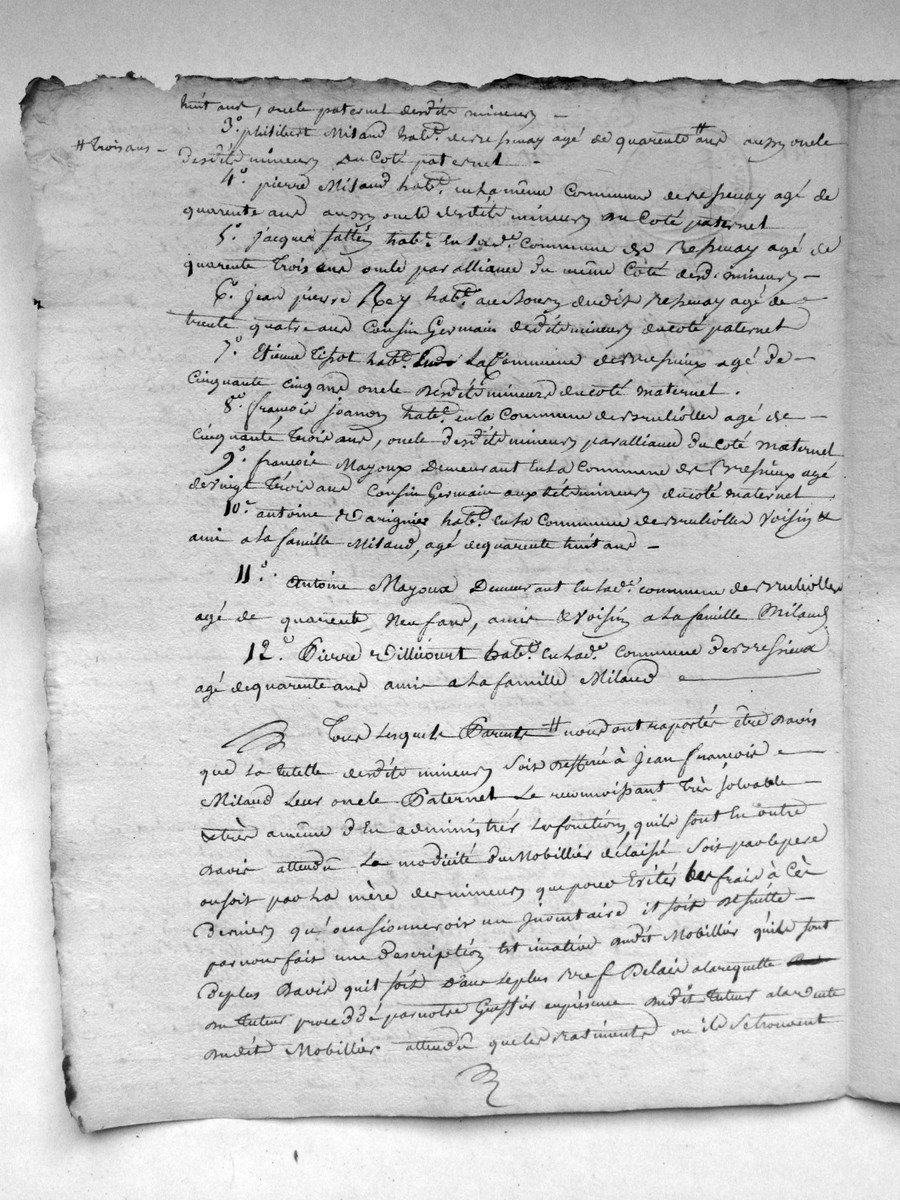 huit ans, oncle paternel desdits mineurs –
3°. philibert Milaud habt. de Bressieux agé de quarente # ans aussy oncle
# Trois ans –
desdits mineurs Du Coté paternel –
4°. pierre Milaud habt. en la même Commune de agé de
quarente ans aussy oncle desdits mineurs Du Coté paternel
5°. jacques habt. en lade. Commune de agé de
quarente Trois ans oncle par alliance Du même Côté desd. mineurs –
6°. jean pierre Rey habt. audit agé de
trente quatre ans Cousin Germain desdits mineurs du coté paternel
7°. Etienne Tipot habt. la Commune de agé de –
Cinquante Cinq ans oncle desdits mineurs du coté maternel.
8°. françois joanon habt. en la Commune de Brulioller agé de –
Cinquante Trois ans, oncle desdits mineurs par alliance Du Coté maternel
9°. françois Mayoux Demeurant en la Commune de agé
de vingt Trois ans Cousin Germain auxdits mineurs du coté maternel
10°. antoine habt. en la Commune de Brulioller Voisin et
ami a la famille Milaud, agé de quarente huit ans –
11°. Antoine Mayoux Demeurant en lade. commune de Brulioller
agé de quarente Neuf ans, amis & Voisin a la famille Milaud
12°. Pierre Villecourt habt. en lade. Commune de
agé de quarente ans ami a la famille Milaud
Tous Lesquels Parents # nous ont raportés être Davis
que La tutelle desdits mineurs Soit à Jean françois
Milaud Leur oncle Paternel Le reconnoissant Très solvable
& très amême d'En administrés Les fonctions, quils sont En outre
Davis attendu La modicité du Mobillier délaissé Soit par le pere
ou soit par La mère des mineurs que pour Evités les frais à Cès
Derniers qu'occasionneroit un Inventaire il soit Desuitte –
par nous fait une description Estimative dudit Mobillier quils sont
Deplus Davis quil soit Dans le plus Bref Delais a la requette
Du Tuteur procèddé par notre Greffier en présence dudit Tuteur a la Vente
dudit Mobillier attendu que les Batiments ou ils se trouvent